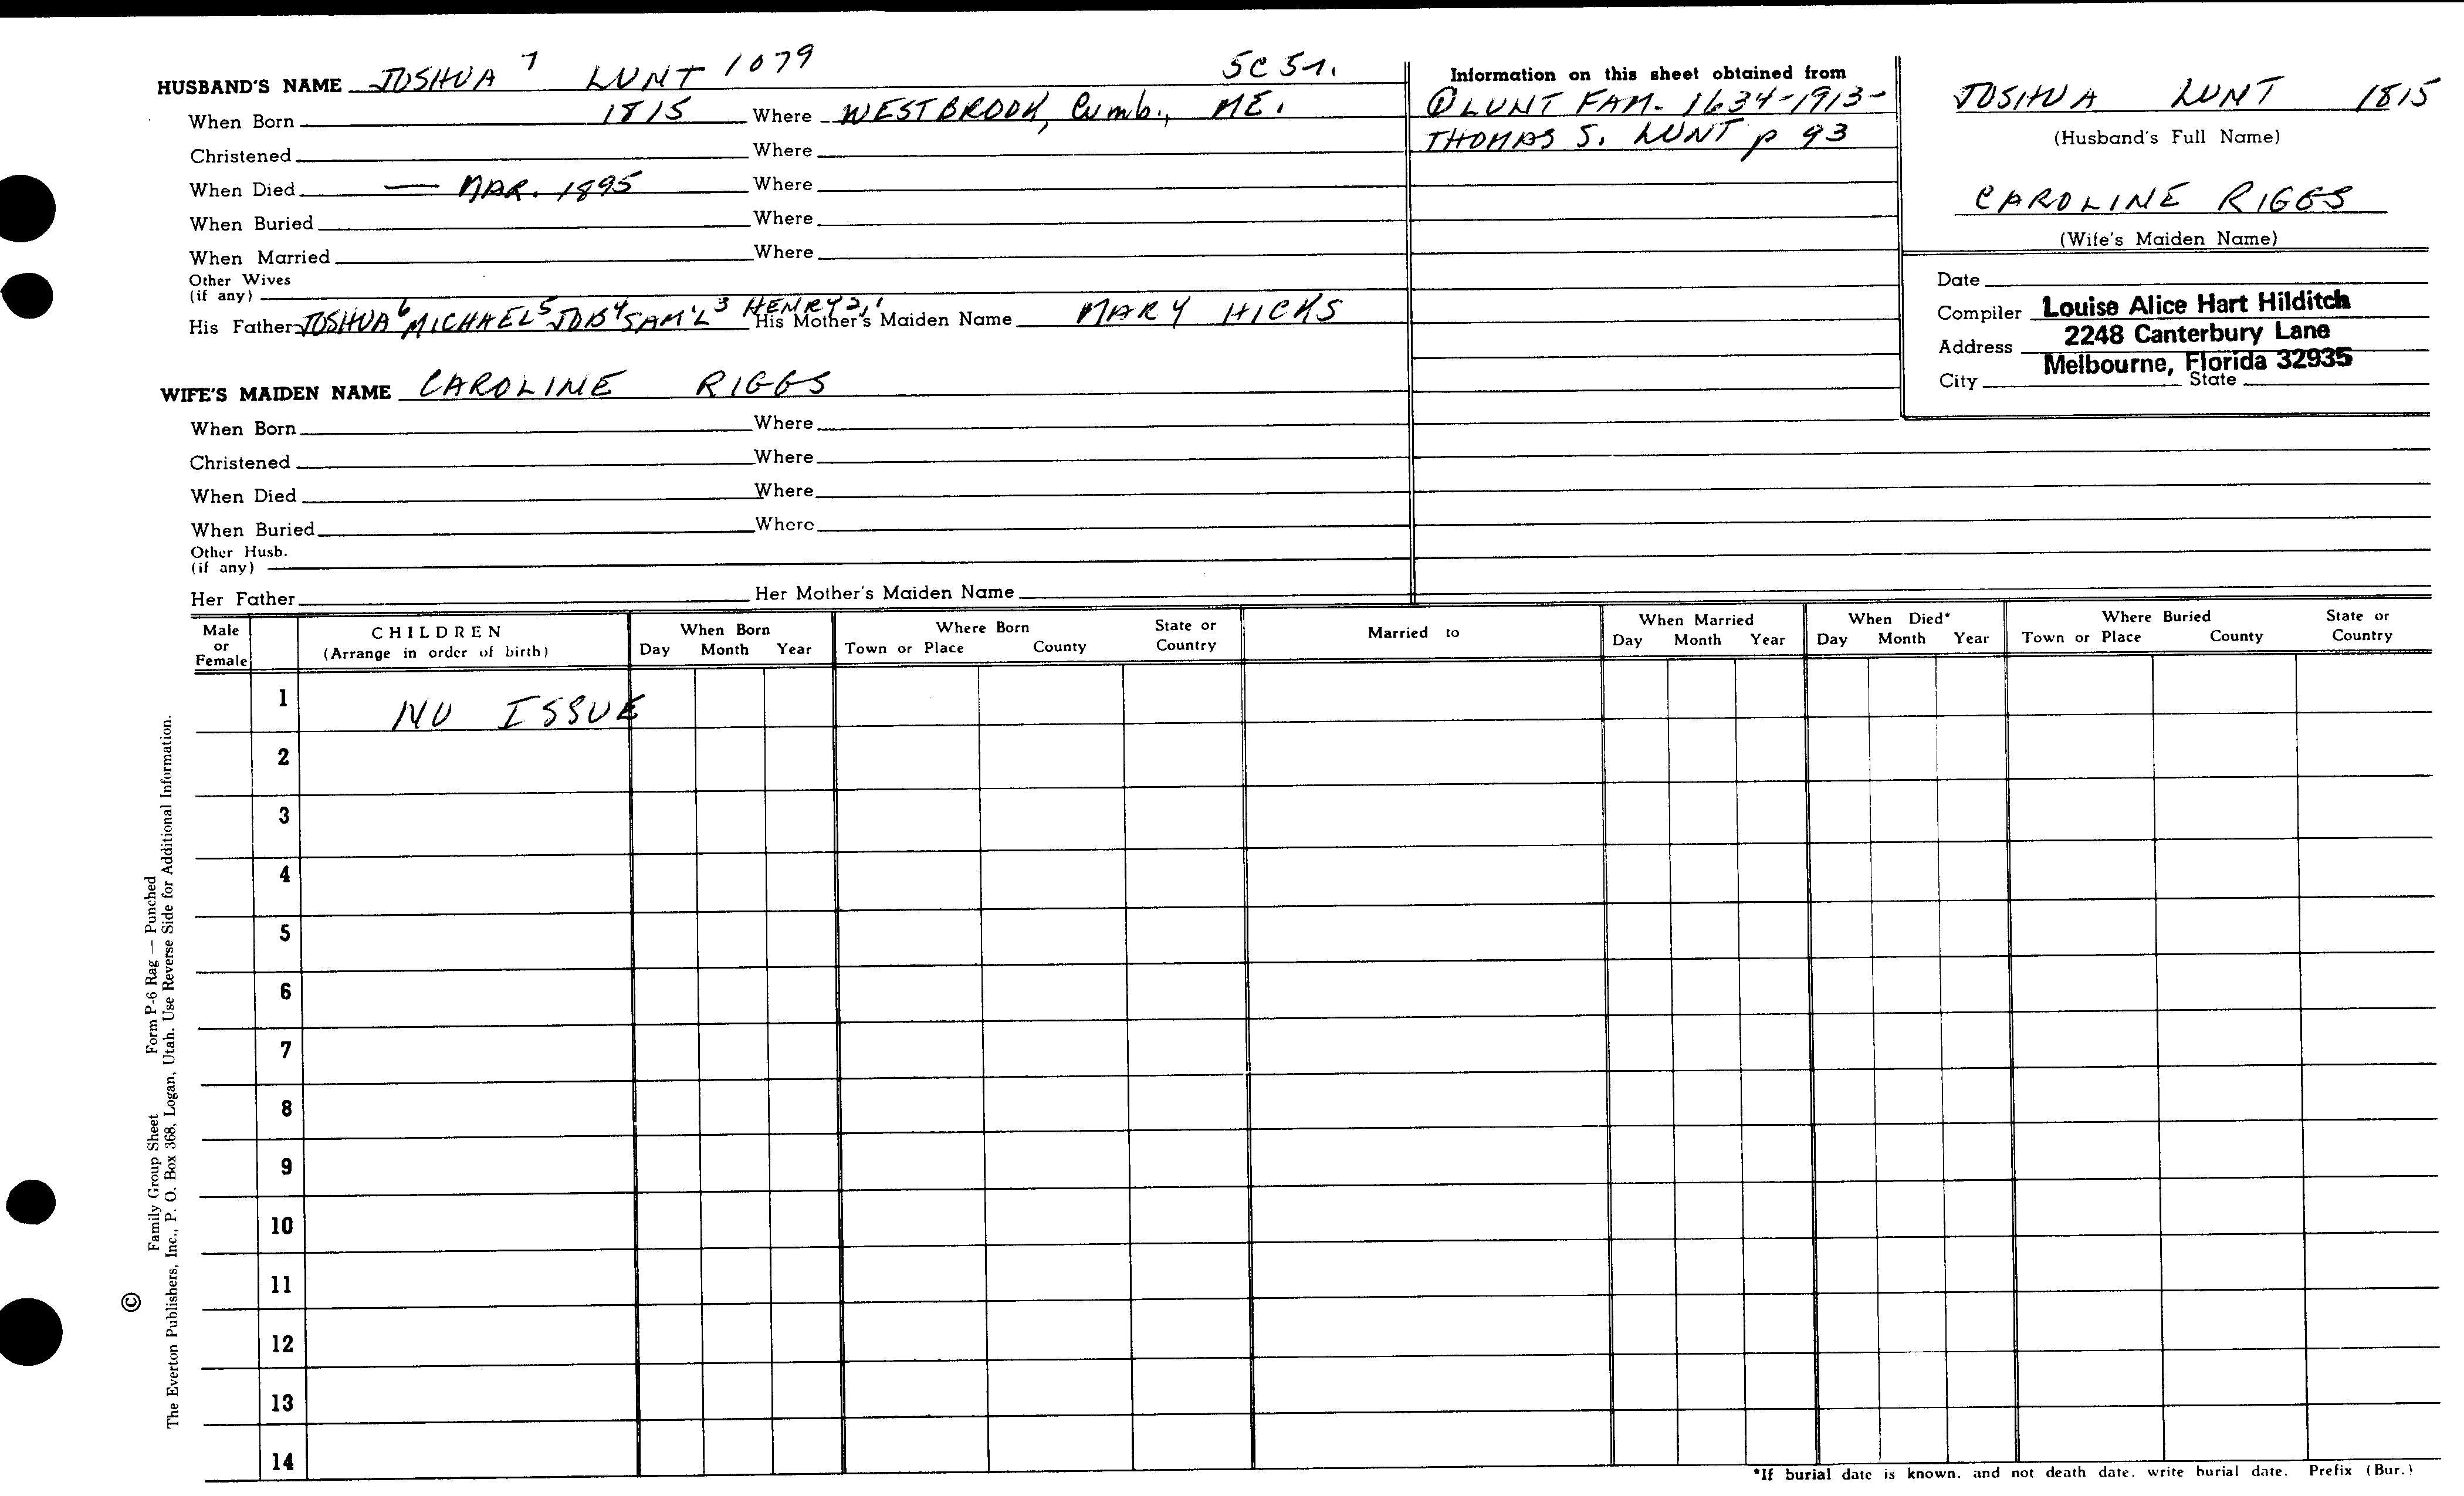 HUSBAND'S NAME JOSHUA 7 LUNT 1079 5C51.
When Born 1815 Where WESTBROOK, Cumb., ME.
Christened Where
When Died — MAR. 1895 Where
When Buried Where
When Married Where
Other Wives
(if any)
His Father JOSHUA 6 MICHAEL 5 JOB 4 SAM'L 3 HENRY 2,1 His Mother's Maiden Name MARY HICKS
WIFE'S MAIDEN NAME CAROLINE RIGGS
When Born Where
Christened Where
When Died Where
When Buried Where
Other Husb.
(if any)
Her Father Her Mother's Maiden Name
Information on this sheet obtained from
① LUNT FAM. 1634-1913-
THOMAS S. LUNT p 93
JOSHUA LUNT 1815
(Husband's Full Name)
CAROLINE RIGGS
(Wife's Maiden Name)
Date
Compiler Louise Alice Hart Hilditch
Address 2248 Canterbury Lane
Melbourne, Florida 32935
City State
Male or Female
CHILDREN
(Arrange in order of birth)
When Born
Day Month Year
Where Born
Town or Place County
State or Country
Married to
When Married
Day Month Year
When Died*
Day Month Year
Where Buried
Town or Place County
State or Country
1 NO ISSUE
2
3
4
5
6
7
8
9
10
11
12
13
14
*If burial date is known, and not death date, write burial date. Prefix (Bur.)
©
Family Group Sheet Form P-6 Rag — Punched
The Everton Publishers, Inc., P. O. Box 368, Logan, Utah. Use Reverse Side for Additional Information.